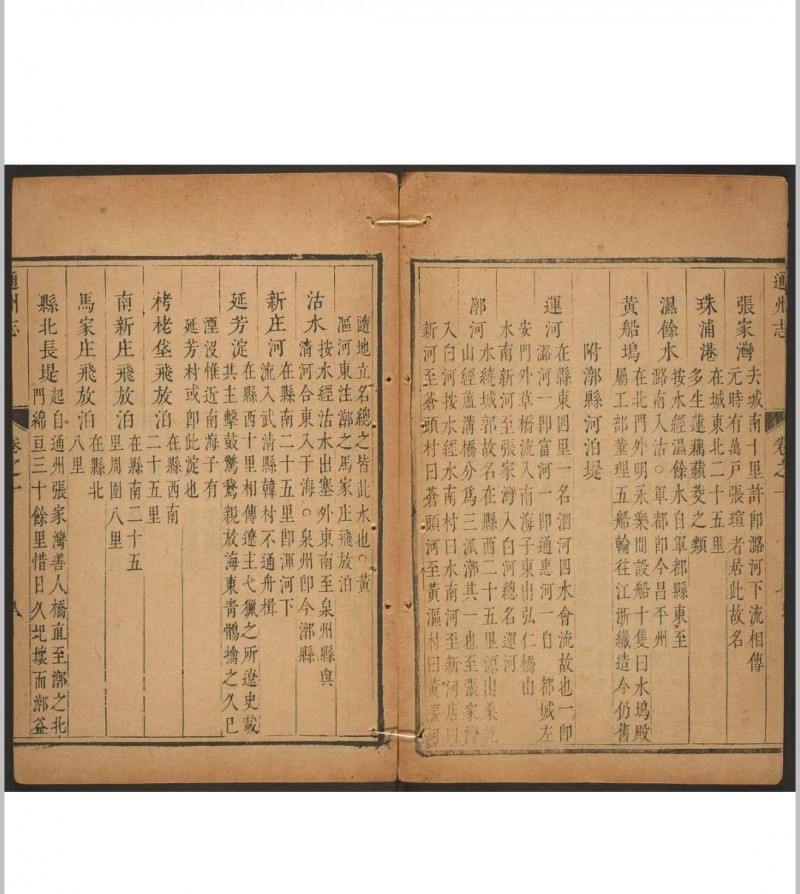 通州志
張家灣 去城南十里許卽潞河下流相傳
元時有萬戸張瑄者居此故名
珠浦港 在城東北二十五里
多生蓮藕蘋茭之類
濕餘水 按水經濕餘水自軍都縣東至
潞南入沽○軍都卽今昌平州
黃船塢 在北門外明永樂間設船十隻曰水塢殿
屬工部董理五船輪往江浙織造今仍舊
附漷縣河泊堤
運河 在縣東四里一名泗河四水會流故也一卽
潞河一卽富河一卽通惠河一自都城左
安門外草橋流入南海子東出弘仁橋由
水南新河至張家灣入白河總名運河
漷河 水繞城郭故名在縣西二十五里源出桑乾
山經蘆溝橋分爲三派漷其一也至張家灣
入白河按水經水南村曰水南河至新河店曰
新河至蒼頭村曰蒼頭河至黃漚村曰黃漚河
卷之一
隨地立名總之皆此水也○黃
漚河東注漷之馬家庄飛放泊
沽水 按水經沽水出塞外東南至泉州縣與
清河合東入于海○泉州卽今漷縣
新庄河 在縣南二十五里卽渾河下
流入武清縣韓村不通舟楫
延芳淀 在縣西十里相傳遼主弋獵之所遼史載
其主擊鼓驚鵞親放海東青鶻擒之久已
湮沒惟近南海子有
延芳村或卽此淀也
栲栳垡飛放泊 在縣西南
二十五里
南新庄飛放泊 在縣南二十五
里周圍八里
馬家庄飛放泊 在縣北
八里
縣北長堤 起自通州張家灣善人橋直至漷之北
門綿亘三十餘里惜日久圮壞而漷益
通州志
卷之一
八